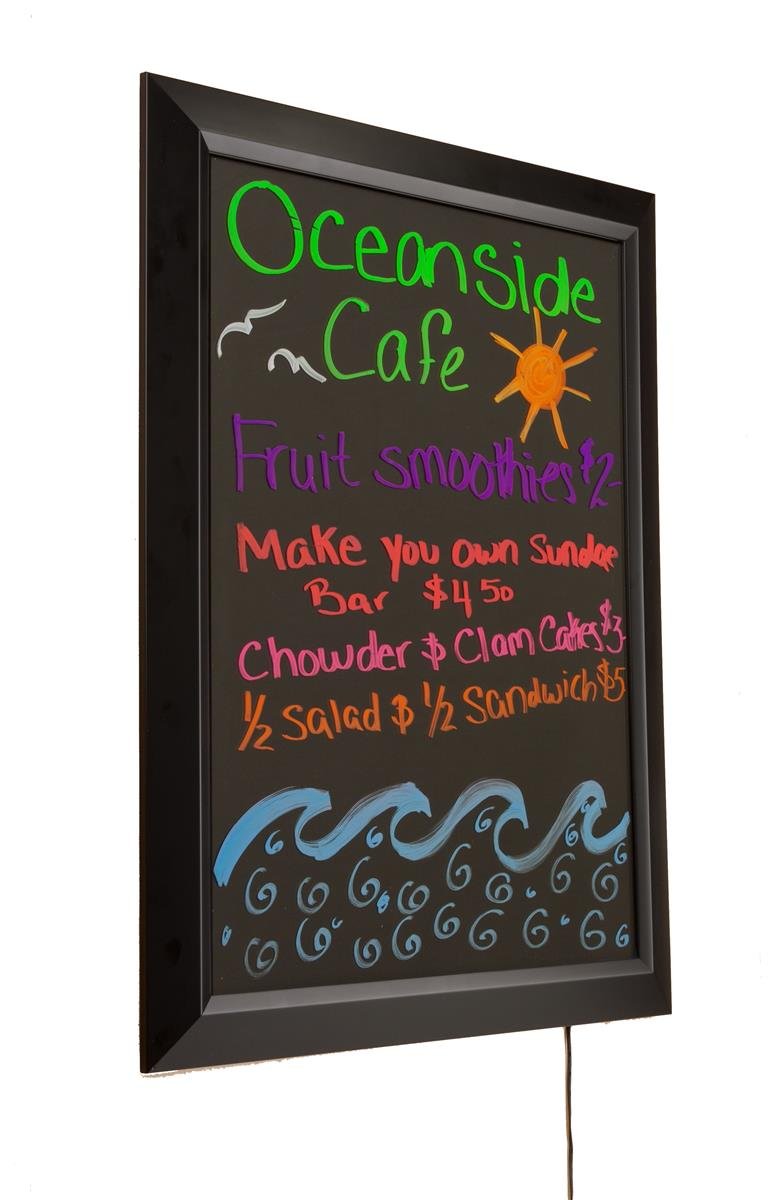 Oceanside
Cafe
Fruit smoothies $2-
Make you own Sundae
Bar $4 50
Chowder & Clam Cakes $3-
1/2 Salad & 1/2 Sandwich $5